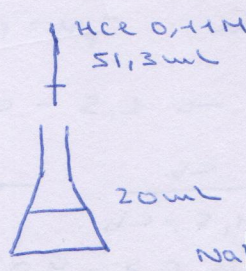 HCl 0,11M
51,3 mL
20 mL
Na